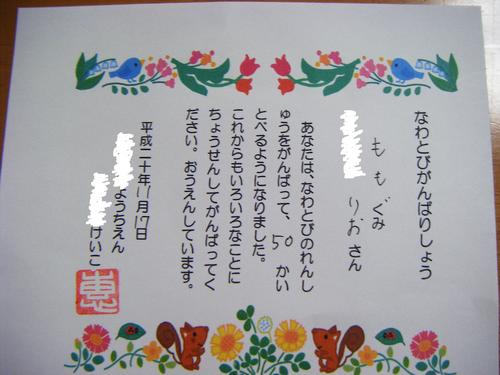 なわとびがんばりしょう
ももぐみ
りおさん
あなたは、なわとびのれんし
ゅうをがんばって、50かい
とべるようになりました。
これからもいろいろなことに
ちょうせんしてがんばってく
ださい。おうえんしています。
平成二十年11月17日
ようちえん
けいこ
恵